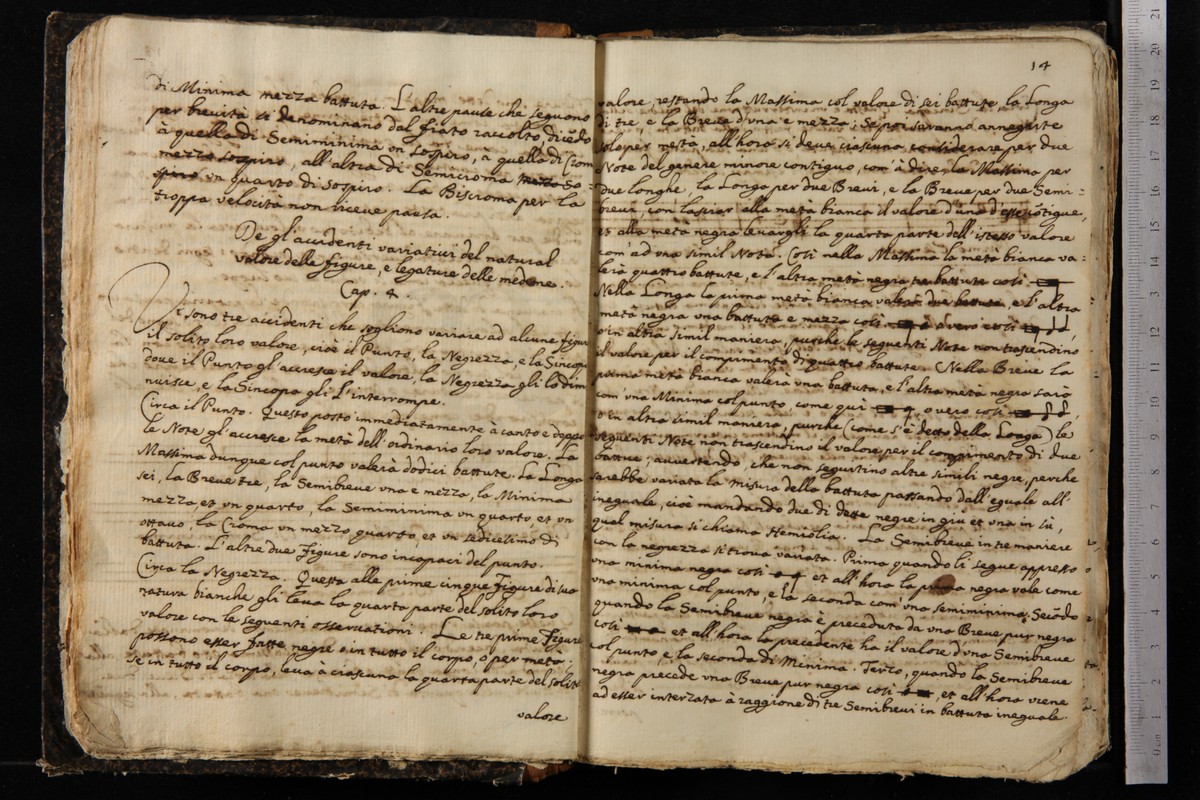 di Minima mezza battuta. L'altre pause che seguono
per breuità si denominano dal fiato raccolto, dicẽdo
à quella di Semiminima un sospiro, à quella di Crom
mezzo sospiro, all'altra di Semicroma mezzo So
spiro vn quarto di sospiro. La Biscroma per la
troppa velocità non riceue pausa.
De gl'accidenti variatiui del natural
valore delle figure, e legature delle medeme.
Cap. 4.
Vi sono tre accidenti che sogliono variare ad alcune figure
il solito loro valore, cioè il Punto, la Negrezza, e la Sincopa
doue il Punto gl'accresce il valore, la Negrezza gli lo dimi
nuisce, e la Sincopa gli l'interrompe.
Circa il Punto. Questo posto immediatamente à canto e doppo
le Note gl'accresce la metà dell'ordinario loro valore. La
Massima dunque col punto valerà dodici battute. La Longa
sei, la Breue tre, la Semibreue vna e mezza, la Minima
mezza et vn quarto, la Semiminima vn quarto et vn
ottauo, la Croma vn mezzo quarto et vn sedicesimo di
battuta. L'altre due figure sono incapaci del punto.
Circa la Negrezza. Questa alle prime cinque figure di sua
natura bianche gli leua la quarta parte del solito loro
valore con le seguenti osseruationi. Le tre prime figure
possono esser fatte negre o in tutto il corpo, o per metà;
se in tutto il corpo, leua à ciascuna la quarta parte del solito
valore
14
valore, restando la Massima col valore di sei battute, la Longa
di tre, e la Breue d'vna e mezza; Se poi saranno annegrite
solo per metà, all'hora si deue ciascuna considerare per due
Note del genere minore contiguo, com'à dire, la Massima per
due longhe, la Longa per due Breui, e la Breue per due Semi-
breui, con lasciar alla metà bianca il valore d'una d'esse cõtigue,
et alla metà negra leuargli la quarta parte dell'istesso valore
com'ad vna simil Nota. Così nella Massima la metà bianca va-
lerà quattro battute, e l'altra metà negra tre battute così
Nella Longa la prima metà bianca valerà due battute, e l'altra
metà negra vna battuta e mezza così ò vero così
o in altra simil maniera, purche le seguenti Note non trascendino
il valore per il compimento di quattro battute. Nella Breue la
prima metà bianca valerà vna battuta, e l'altra metà negra sarà
com'vna Minima col punto come quì o vero così
o in altra simil maniera, purche (come s'è detto della Longa) le
seguenti Note non trascendino il valore per il compimento di due
battute; auuertendo, che non seguitino altre simili negre, perche
sarebbe variata la misura della battuta passando dall'eguale all'
ineguale, cioè mandando due di dette negre in giù et vna in sù,
qual misura si chiama Hemiolia. La Semibreue in tre maniere
con la negrezza si troua variata. Prima quando li segue appresso
vna minima negra così et all'hora la prima negra vale come
vna minima col punto, e la seconda com'vna semiminima. Secõdo
quando la Semibreue negra è preceduta da vna Breue pur negra
così et all'hora la precedente ha il valore d'vna Semibreue
col punto e la seconda di Minima. Terzo, quando la Semibreue
negra precede vna Breue pur negra così, et all'hora viene
ad esser interzata à raggione di tre Semibreui in battuta ineguale